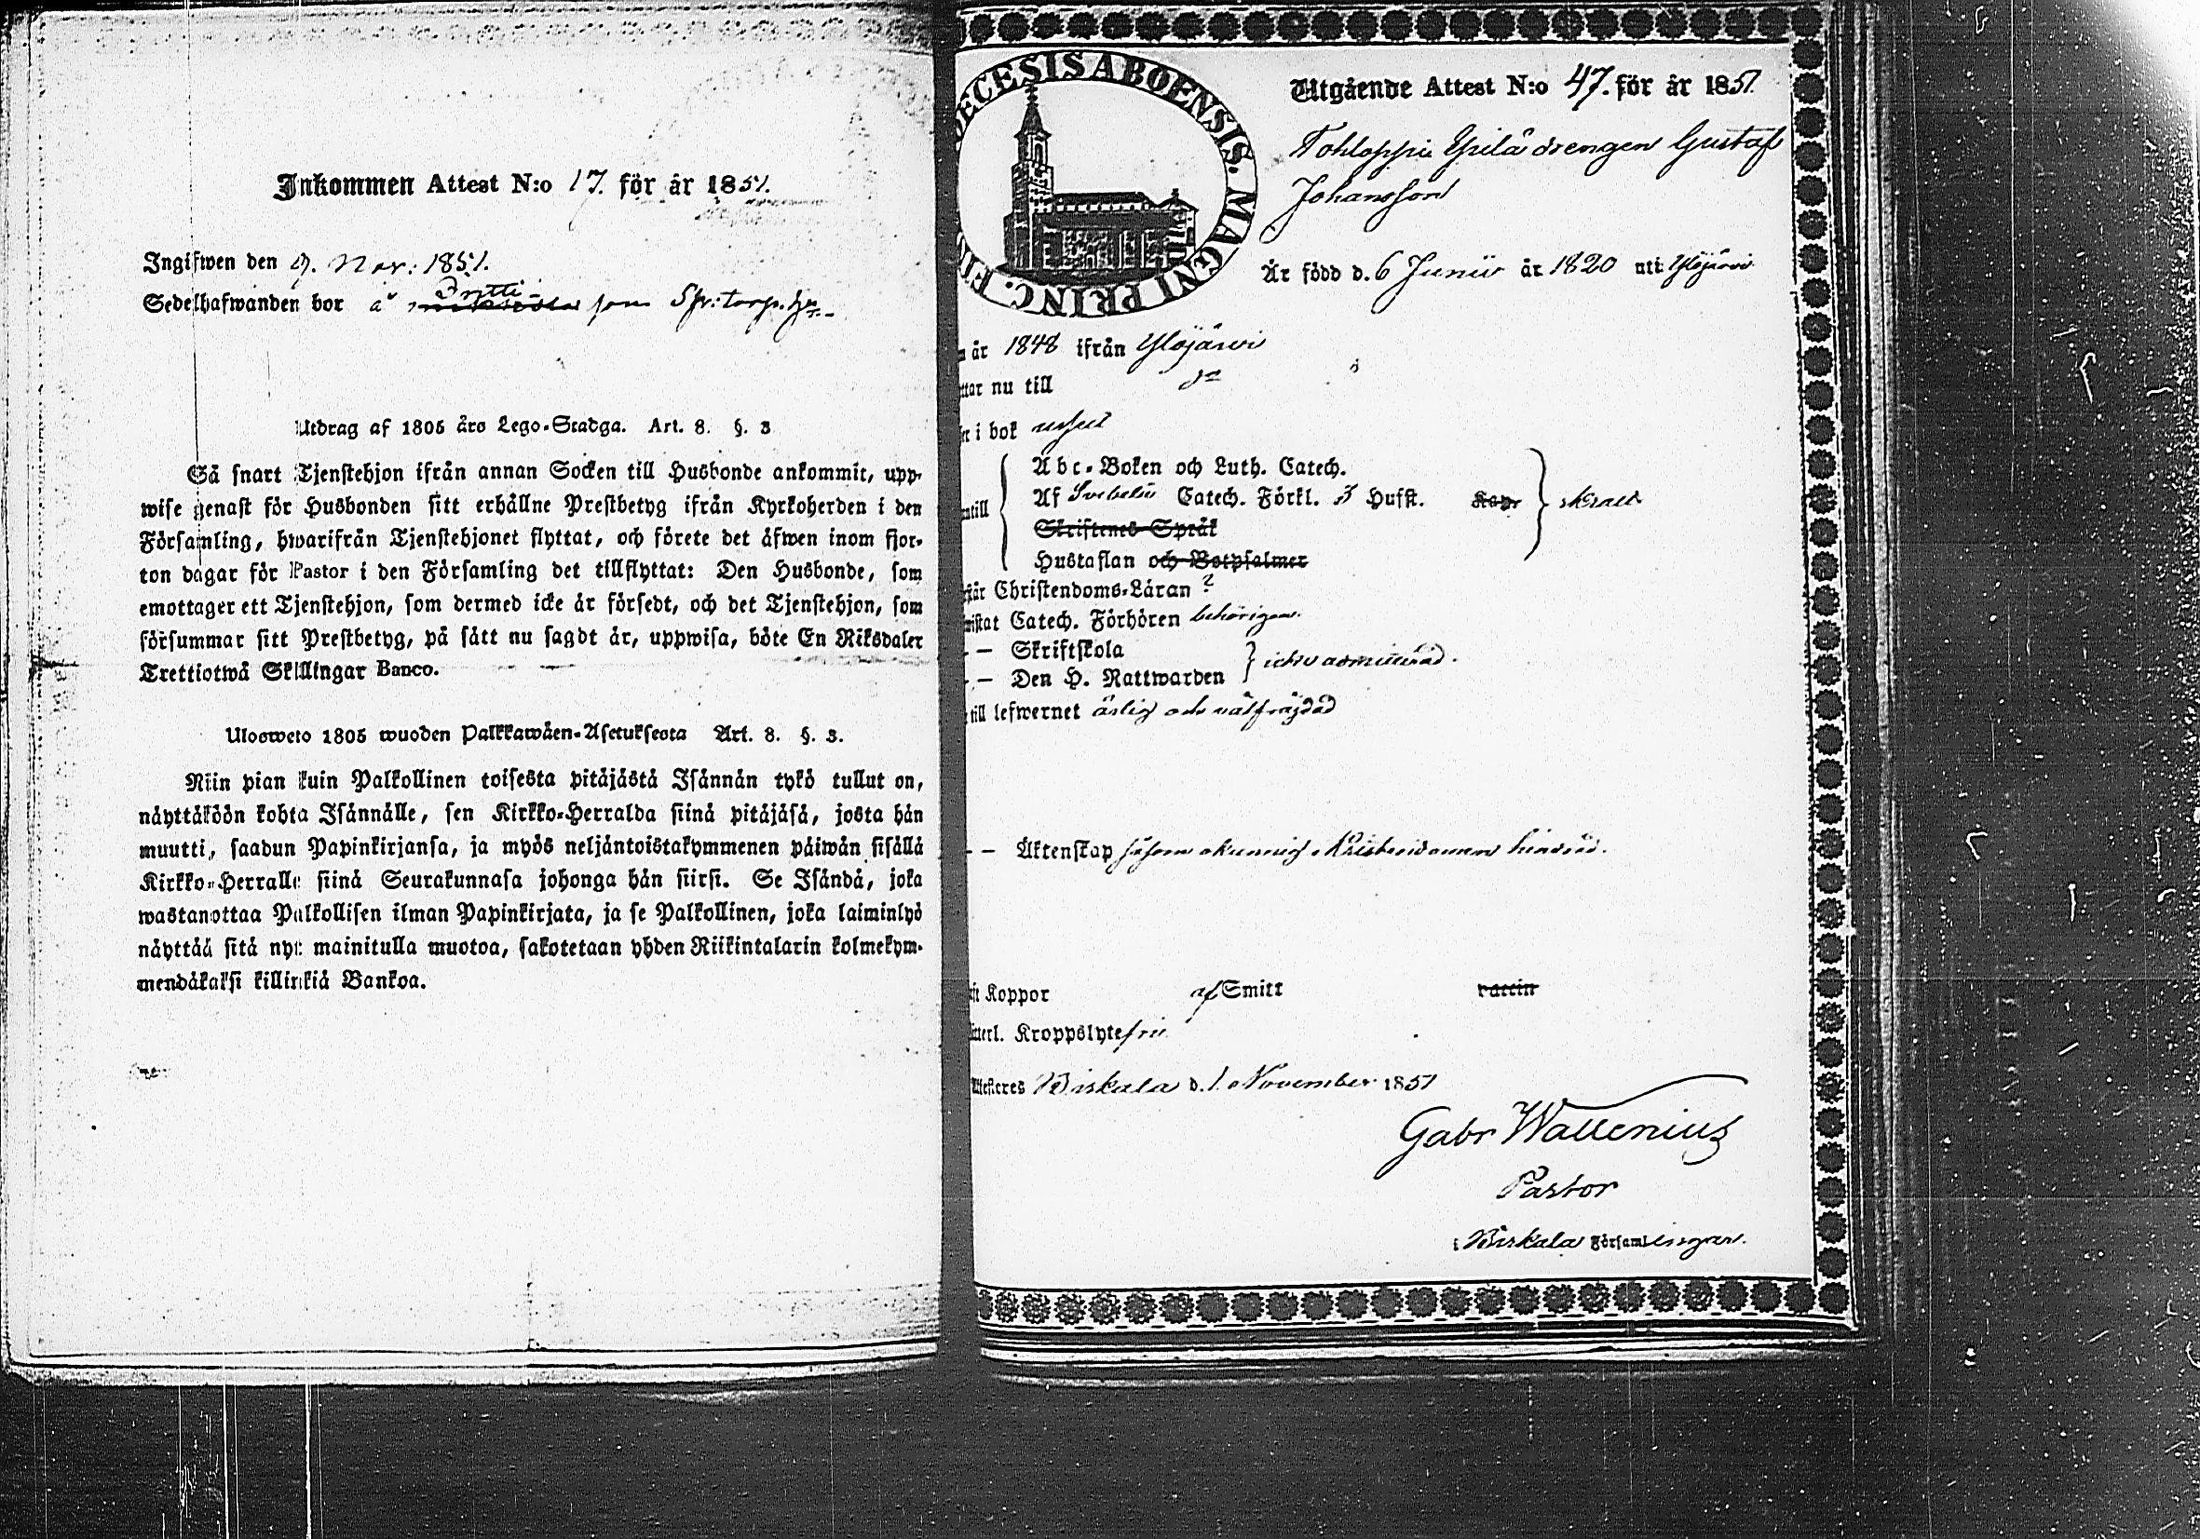 Inkommen Attest N:o 17. för år 1851.
Ingifwen den 9. Nov: 1851.
Sedelhafwanden bor å Frytti som Sp:torp.
Utdrag af 1805 års Lego-Stadga. Art. 8. §. 3
Så snart Tjenstehjon ifrån annan Socken till Husbonde ankommit, upp-
wise genast för Husbonden sitt erhållne Prestbetyg ifrån Kyrkoherden i den
Församling, hwarifrån Tjenstehjonet flyttat, och förete det äfwen inom fjor-
ton dagar för Pastor i den Församling det tillflyttat: Den Husbonde, som
emottager ett Tjenstehjon, som dermed icke är försedt, och det Tjenstehjon, som
försummar sitt Prestbetyg, på sätt nu sagdt är, uppwisa, böte En Riksdaler
Trettiotwå Skillingar Banco.
Ulosweto 1805 wuoden Palkkawäen-Asetuksesta Art. 8. §. 3.
Niin pian kuin Palkollinen toisesta pitäjästä Isännän tykö tullut on,
näyttäköön kohta Isännälle, sen Kirkko-Herralda siinä pitäjäsä, josta hän
muutti, saadun Papinkirjansa, ja myös neljäntoistakymmenen päiwän sisällä
Kirkko-Herralle siinä Seurakunnasa johonga hän siirsi. Se Isändä, joka
wastanottaa Palkollisen ilman Papinkirjata, ja se Palkollinen, joka laiminlyö
näyttää sitä nyt mainitulla muotoa, sakotetaan yhden Riikintalarin kolmekym-
mendäkaksi killinkiä Bankoa.
ECESIS ABOENSIS. MAGNI PRINC. FIN
Utgående Attest N:o 47. för år 1851.
Tohloppi Ypilä drengen Gustaf
Johansson
Är född d. 6 Junii år 1820 uti Ylöjärvi
år 1848 ifrån Ylöjärvi
ttar nu till do
i bok usselt
Abc-Boken och Luth. Catech.
ntill Af Svebelii Catech. Förkl. 3 Hufst. Kap: svalt
Skriftenes Språk
Hustaflan och Botpsalmer
Christendoms-Läran ?
wistat Catech. Förhören behörigen.
— Skriftskola
— Den H. Nattwarden icke admitterad.
till lefwernet ärlig och välfräjdad
— Äktenskap såsom okunnig i Kristendomen hindrad.
Koppor af Smitt vaccin
tterl. Kroppslyte fri
Attesteres Birkala d. 1. November 1851
Gabr Wallenius
Pastor
i Birkala Församlingar.